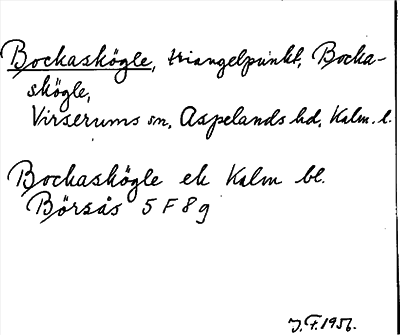 Bockaskögle, triangelpunkt, Bocka-
skögle,
Virserums sn, Aspelands hd, Kalm. l.
Bockaskögle ek Kalm bl.
Börsås 5 F 8 g
J.F. 1956.